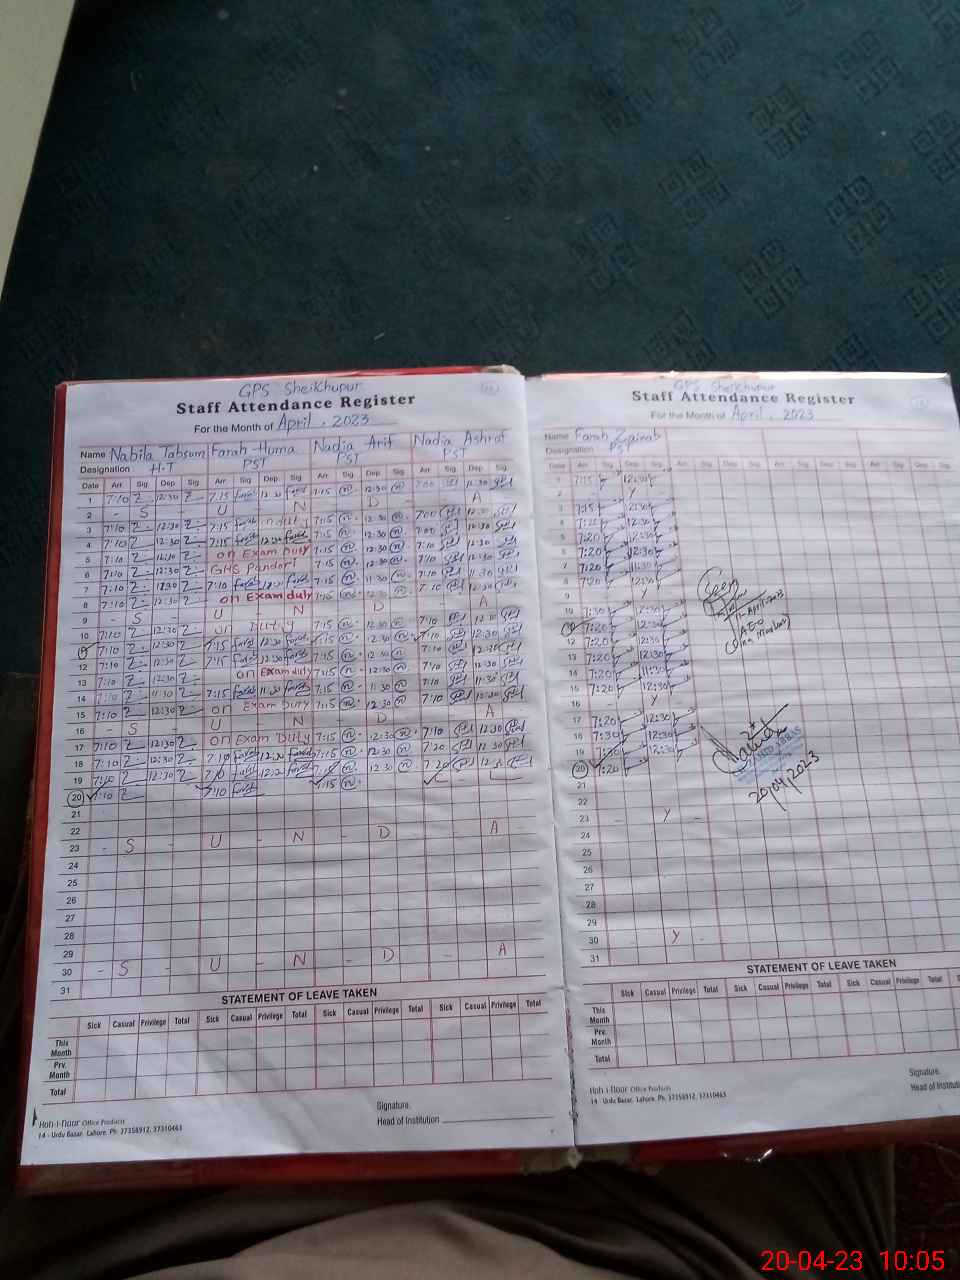 GPS Sheikhupur
Staff Attendance Register
For the Month of April, 2023
Name Nabila Tabsum Farah Huma Nadia Arif Nadia Ashraf
Designation H.T PST PST PST
Date Arr Sig Dep Sig Arr Sig Dep Sig Arr Sig Dep Sig Arr Sig Dep Sig
1 7:10 12:30 7:15 12:30 7:15 12:30 7:00 12:30
2 - S - U - N - D - A
3 7:10 12:30 7:15 7:15 12:30 7:00 12:30
4 7:10 12:30 7:15 12:30 7:15 12:30 7:00 12:30
5 7:10 12:30 on Exam Duty 7:15 12:30 7:10 12:30
6 7:10 12:30 GHS Pandori 7:15 12:30 7:10 12:30
7 7:10 11:30 7:10 7:15 11:30 7:10 11:30
8 7:10 12:30 on Exam duty 7:15 12:30 7:10 12:30
9 - S - U N D A
10 7:10 12:30 on Duty 7:15 12:30 7:10 12:30
7:10 12:30 7:15 12:30 7:15 12:30 7:10 12:30
12 7:10 12:30 7:15 12:30 7:15 12:30 7:10 12:30
13 7:10 12:30 on Exam duty 7:15 12:30 7:10 12:30
14 7:10 11:30 7:15 11:30 7:15 11:30 7:10 11:30
15 7:10 12:30 on Exam Duty 7:15 12:30 7:10
16 - S - U N - D A
17 7:10 12:30 on Exam Duty 7:15 12:30 7:10 12:30
18 7:10 12:30 7:10 7:15 12:30 7:20 12:30
19 7:10 12:30 7:10 7:15 12:30 7:20
20 7:10 7:10 7:15
21
22
23 - S - U - N - D - - A
24
25
26
27
28
29
30 - S - U - N - D - A
31
STATEMENT OF LEAVE TAKEN
Sick Casual Privilege Total Sick Casual Privilege Total Sick Casual Privilege Total Sick Casual Privilege Total
This Month
Prv. Month
Total
Signature.
Head of Institution
Hoh-i-Noor Office Products
14 - Urdu Bazar, Lahore. Ph: 37358912, 37310463
GPS Sheikhupur
Staff Attendance Register
For the Month of April, 2023
Name Farah Zainab
Designation PST
Date Arr Sig Dep Sig Arr Sig Dep Sig Arr Sig Dep Sig Arr Sig Dep Sig
1 7:15 12:30
2 - Y -
3 7:15 12:30
4 7:20 12:30
5 7:20 12:30
6 7:20 12:30
7 7:20 11:30
8 7:20 12:30
9 Y
10 7:30 12:30
7:20 12:30
12 7:20 12:30
13 7:20 12:30
14 7:20 11:30
15 7:20 12:30
16 - Y -
17 7:20 12:30
18 7:30 12:30
19 7:30 12:30
20 7:20
21
22
23 - Y -
24
25
26
27
28
29
30 - Y -
31
Seen
AEO
20/04/2023
STATEMENT OF LEAVE TAKEN
Sick Casual Privilege Total Sick Casual Privilege Total Sick Casual Privilege Total
This Month
Prv. Month
Total
Signature.
Head of Institut
Hoh-i-Noor Office Products
14 - Urdu Bazar, Lahore. Ph: 37358912, 37310463
20-04-23 10:05